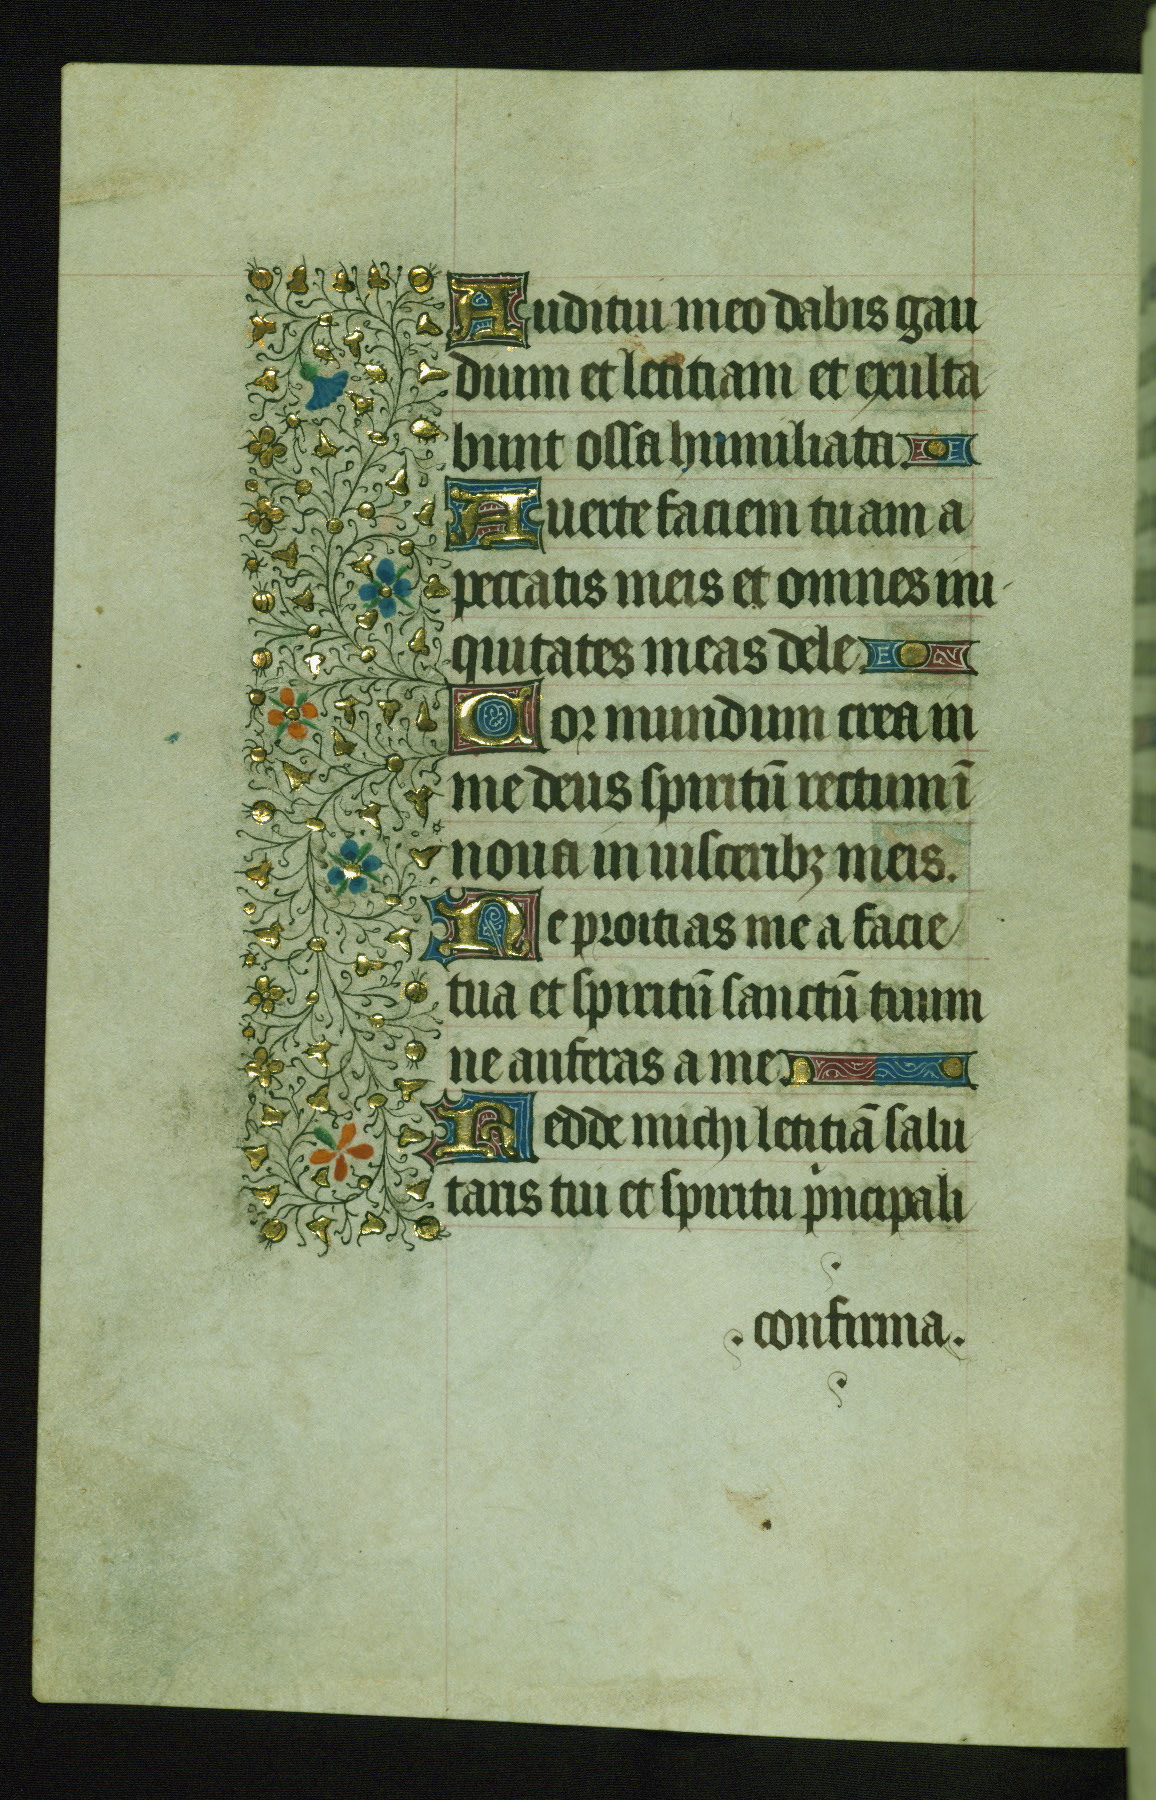 Auditui meo dabis gau
dium et letitiam et exulta
bunt ossa humiliata.
Auerte faciem tuam a
peccatis meis et omnes ini
quitates meas dele.
Cor mundum crea in
me deus spiritū rectum ī
noua in uisceribꝫ meis.
Ne proitias me a facie
tua et spiritū sanctū tuum
ne auferas a me.
Redde michi letitiā salu
taris tui et spiritu pͥncipali
confirma.